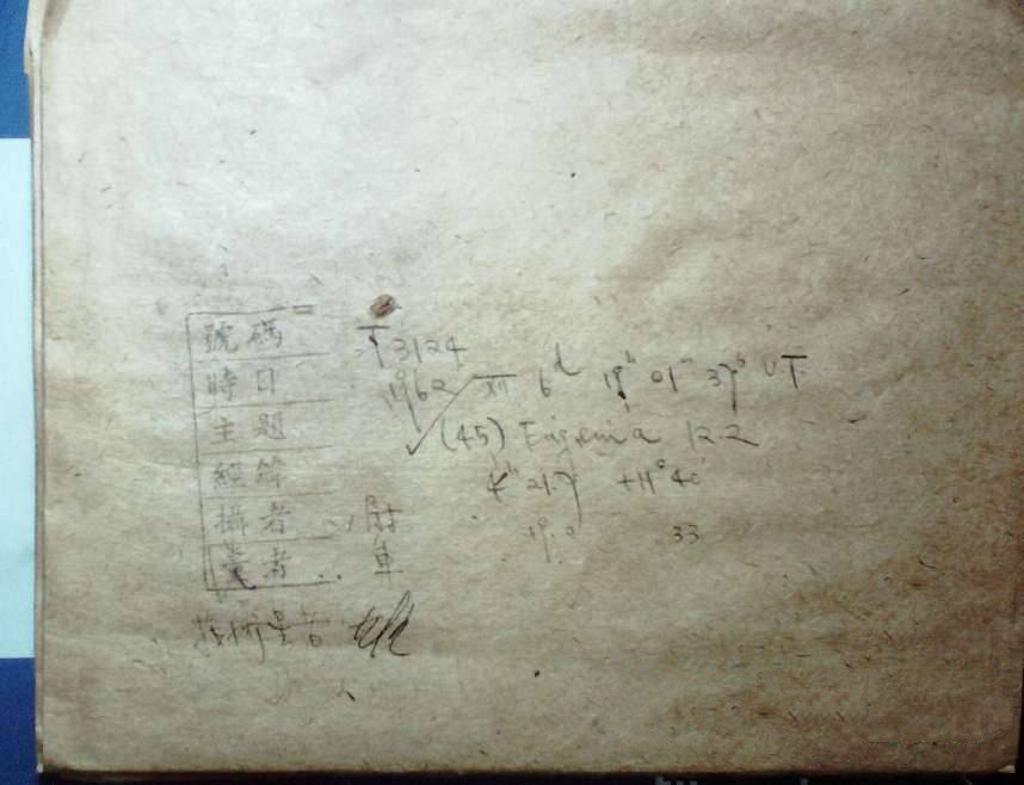 號碼 T 3124
時日 1962 XII 6ᵈ 19ʰ 01ᵐ 37ˢ UT
主題 (45) Eugenia 12.2
經緯 4ʰ 21.7 +11° 40'
攝者 19.0 33
量者 单
量者